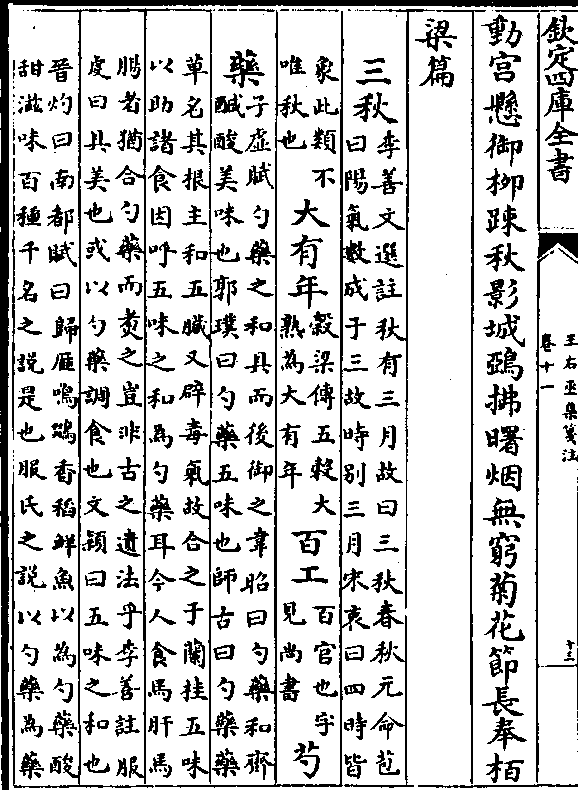 欽定四庫全書
王右丞集箋注
卷十一
十三
動宮懸御柳踈秋影城鵶拂曙烟無窮菊花節長奉栢
梁篇
三秋
李善文選註秋有三月故曰三秋春秋元命苞
曰陽氣數成于三故時别三月宋衷曰四時皆
象此類不
唯秋也
大有年
穀梁傳五穀大
熟為大有年
百工
百官也字
見尚書
芍
藥
子虛賦勺藥之和具而後御之韋昭曰勺藥和齊
鹹酸美味也郭璞曰勺藥五味也師古曰勺藥藥
草名其根主和五臟又辟毒氣故合之于蘭桂五味
以助諸食因呼五味之和為勺藥耳今人食馬肝馬
腸者猶合勺藥而煑之豈非古之遺法乎李善註服
虔曰具美也或以勺藥調食也文穎曰五味之和也
晉灼曰南都賦曰歸鴈鳴鵽香稻鮮魚以為勺藥酸
甜滋味百種千名之說是也服氏之說以勺藥為藥